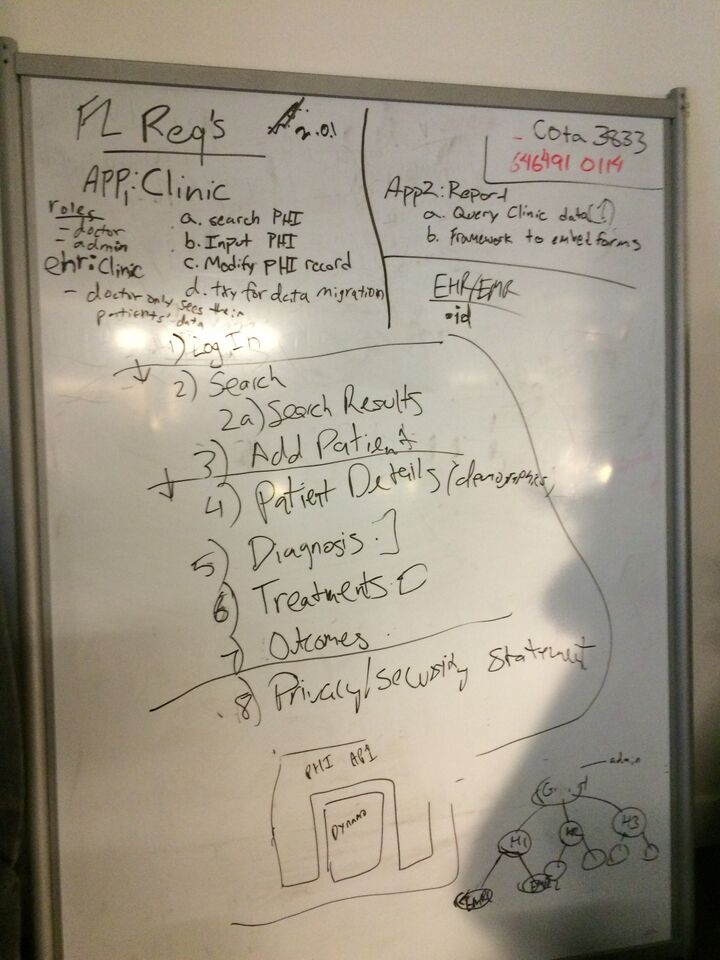 FL Req's
2.01
Cota 3833
646491 0114
APP1: Clinic
roles
- doctor
- admin
ehr: Clinic
- doctor only sees their
patients' data
a. search PHI
b. Input PHI
c. Modify PHI record
d. try for data migration
App2: Report
a. Query Clinic data (1)
b. Framework to embed forms
EHR/EMR
•id
1) Log In
2) Search
2a) Search Results
3) Add Patient
4) Patient Details (demographics)
5) Diagnosis
6) Treatments
7) Outcomes
8) Privacy/Security Statement
PHI API
Dynamo
admin
H1
H2
H3
EMR